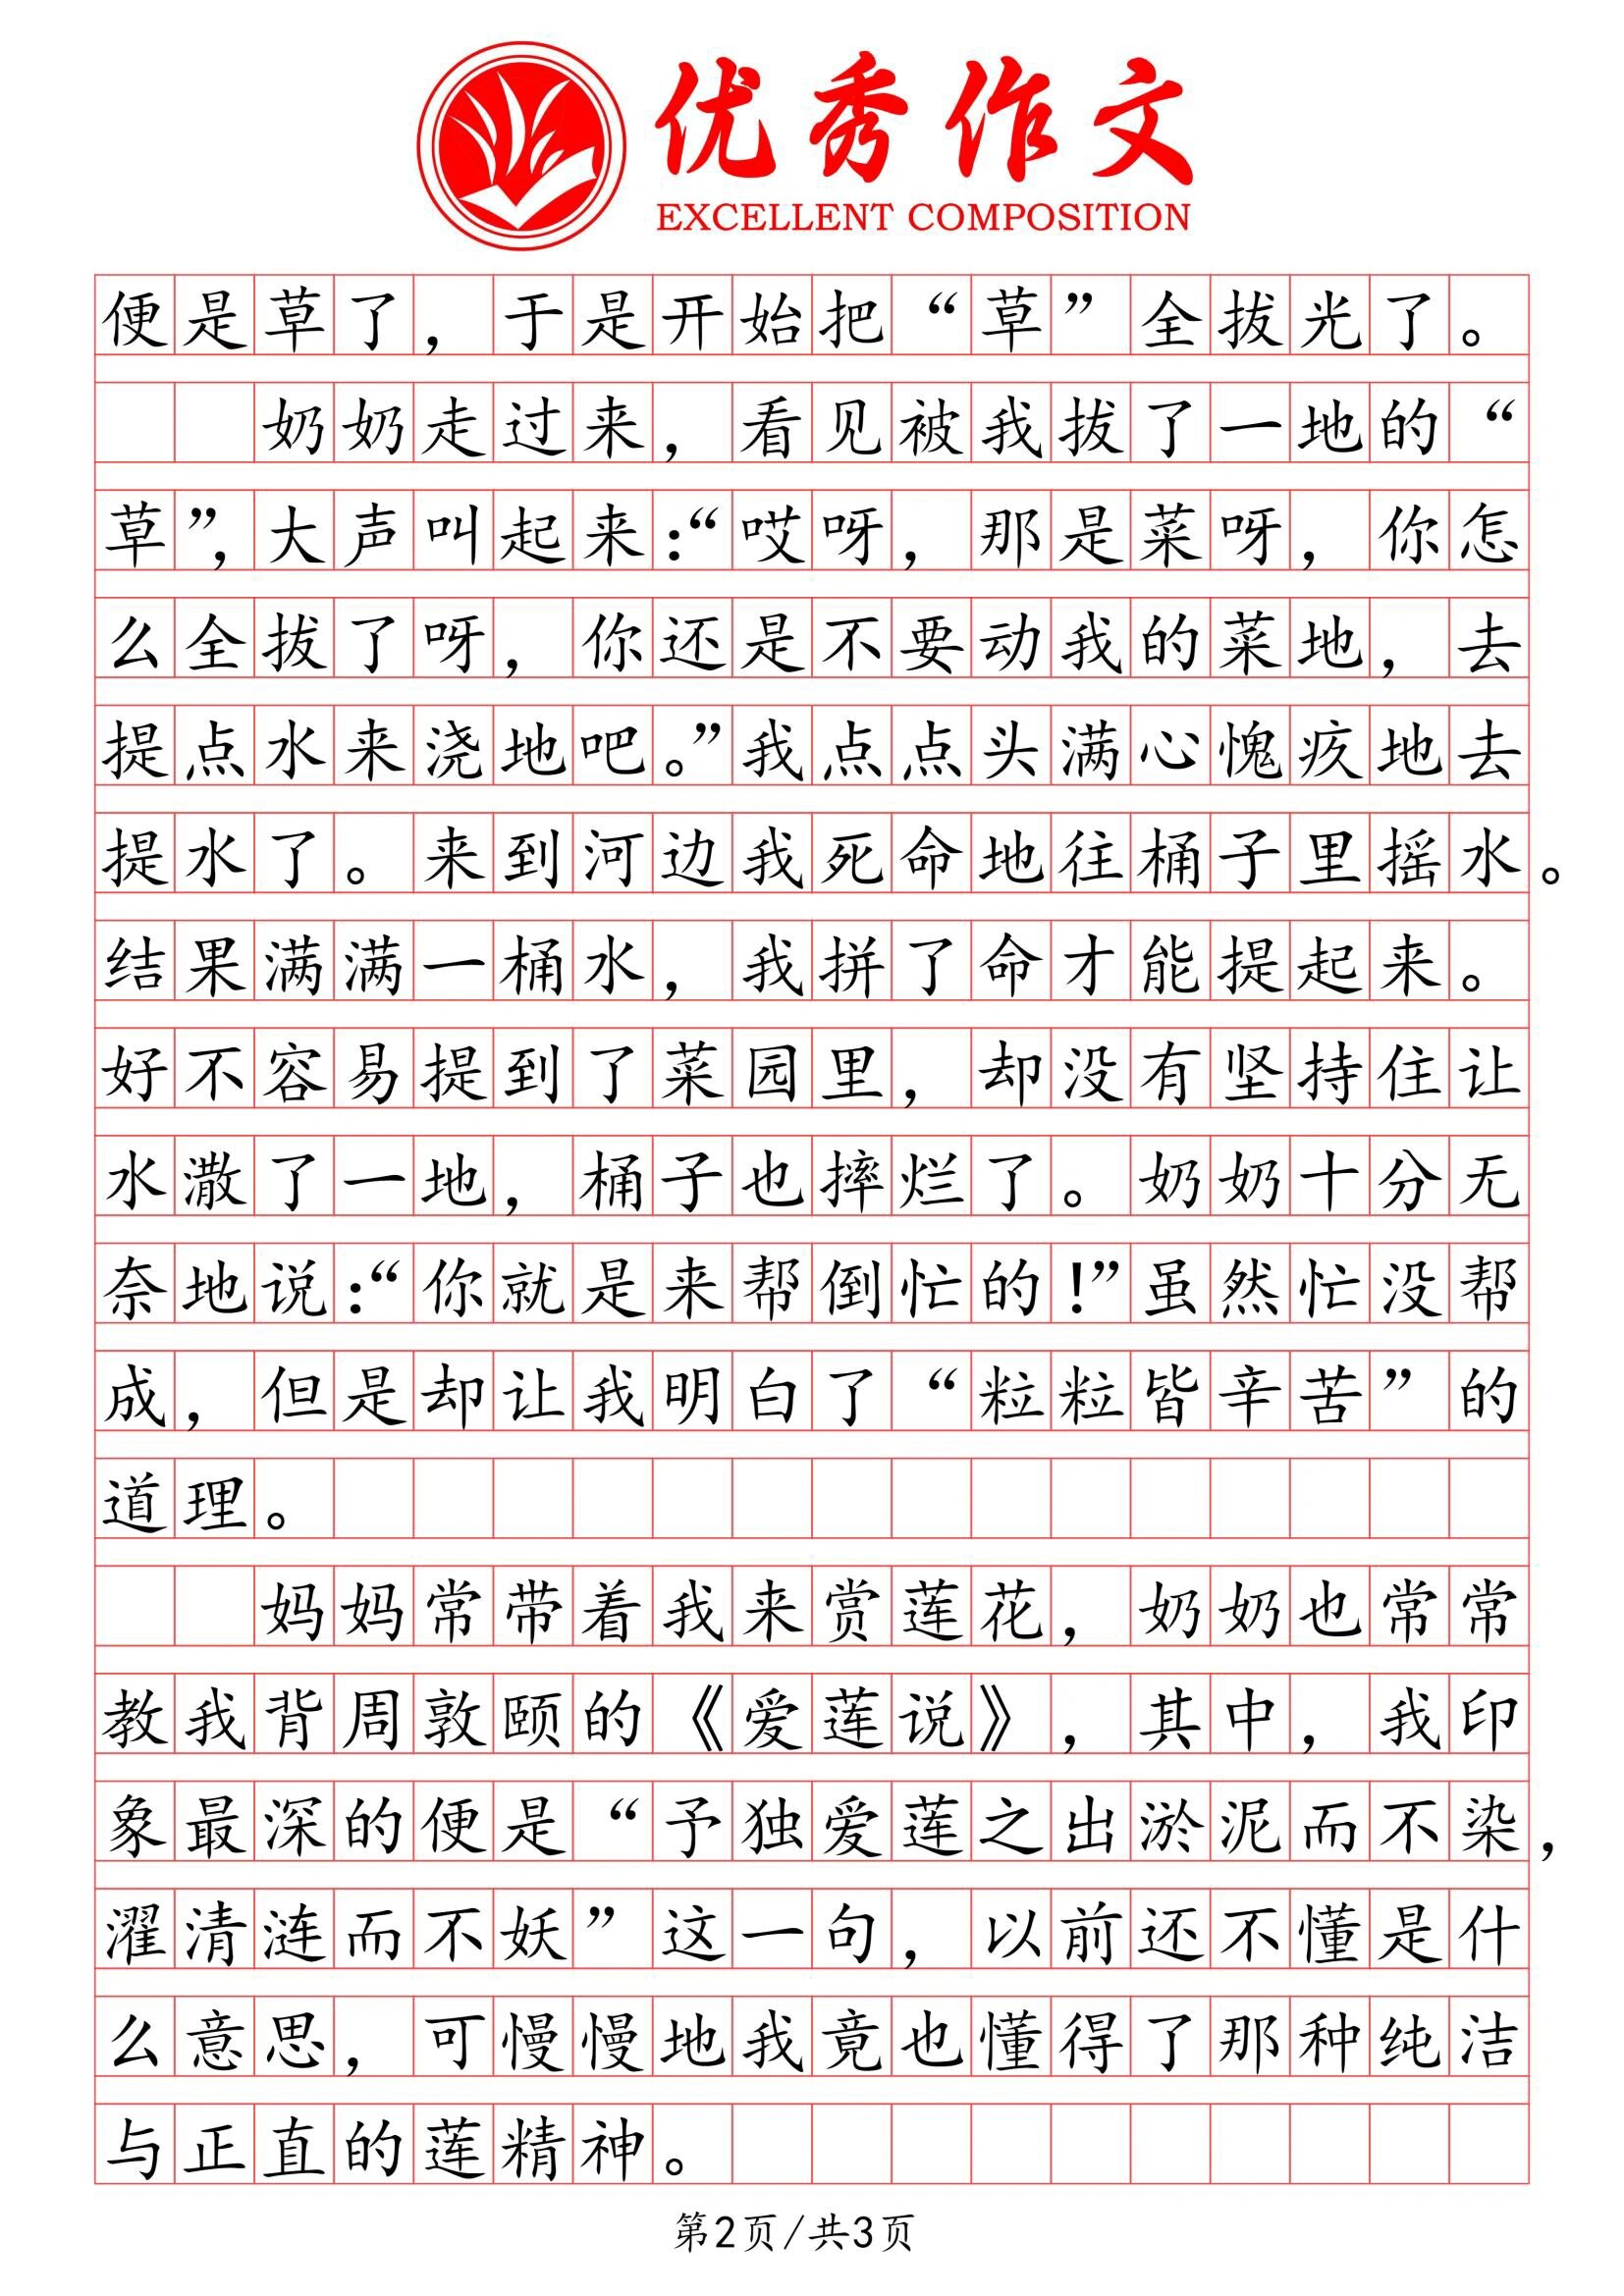 优秀作文
EXCELLENT COMPOSITION
便是草了，于是开始把“草”全拔光了。
奶奶走过来，看见被我拔了一地的“
草”，大声叫起来：“哎呀，那是菜呀，你怎
么全拔了呀，你还是不要动我的菜地，去
提点水来浇地吧。”我点点头满心愧疚地去
提水了。来到河边我死命地往桶子里摇水。
结果满满一桶水，我拼了命才能提起来。
好不容易提到了菜园里，却没有坚持住让
水潵了一地，桶子也摔烂了。奶奶十分无
奈地说：“你就是来帮倒忙的！”虽然忙没帮
成，但是却让我明白了“粒粒皆辛苦”的
道理。
妈妈常带着我来赏莲花，奶奶也常常
教我背周敦颐的《爱莲说》，其中，我印
象最深的便是“予独爱莲之出淤泥而不染，
濯清涟而不妖”这一句，以前还不懂是什
么意思，可慢慢地我竟也懂得了那种纯洁
与正直的莲精神。
第2页/共3页